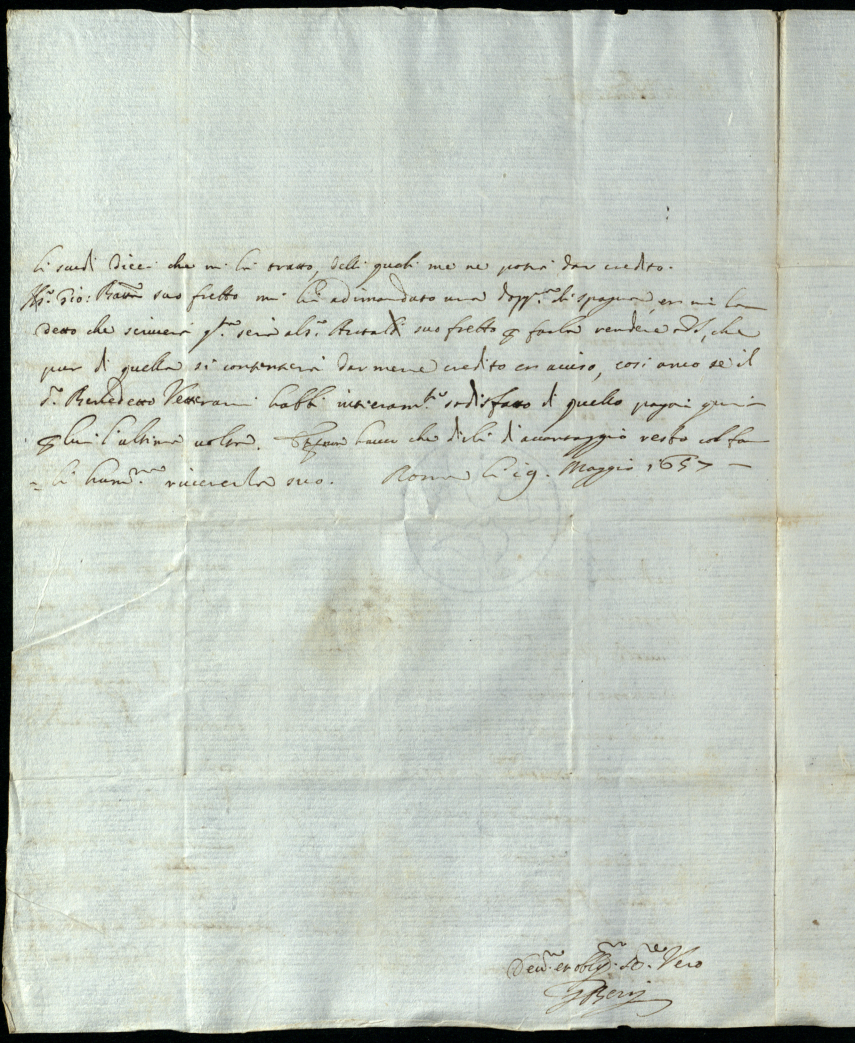 li scudi dieci che mi hà tratto, delli quali me ne potrà dar credito.
Il s.r Gio: Batta suo fratello mi hà adimandato una dopp.a di spagna, et mi ha
detto che scriverà q.ta sera al s.r suo fratello p farla vendere che
pur di quella si contenterà darmene credito et aviso, così anco se il
s.r Benedetto Vetterani habbi intieram.te sodisfatto di quello pagai
p lui l'ultima volta. haver che dirli di avantaggio resto col far
=li hum.ma riverenza suo. Roma li 19. Maggio 1657
Dev.mo et oblig.mo Se.re Vero